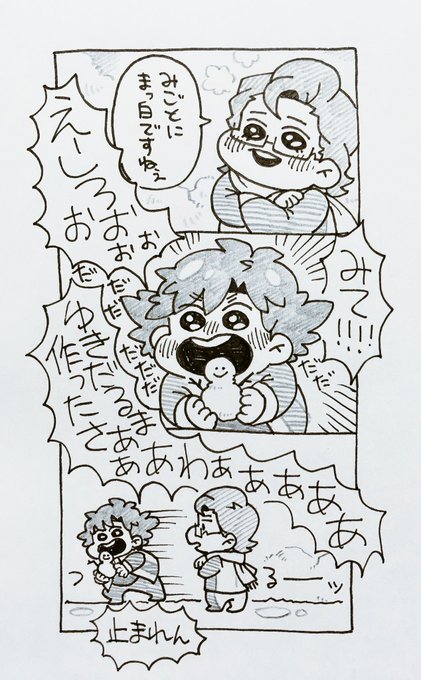 みごとに
まっ白ですねぇ
えーしろ
おおぉぉ
だだだだだだ
みて!!!!
だだだ
ゆきだるま
作ったさ
ぁぁあわぁぁぁぁああ
つ
るーーッ
止まれん